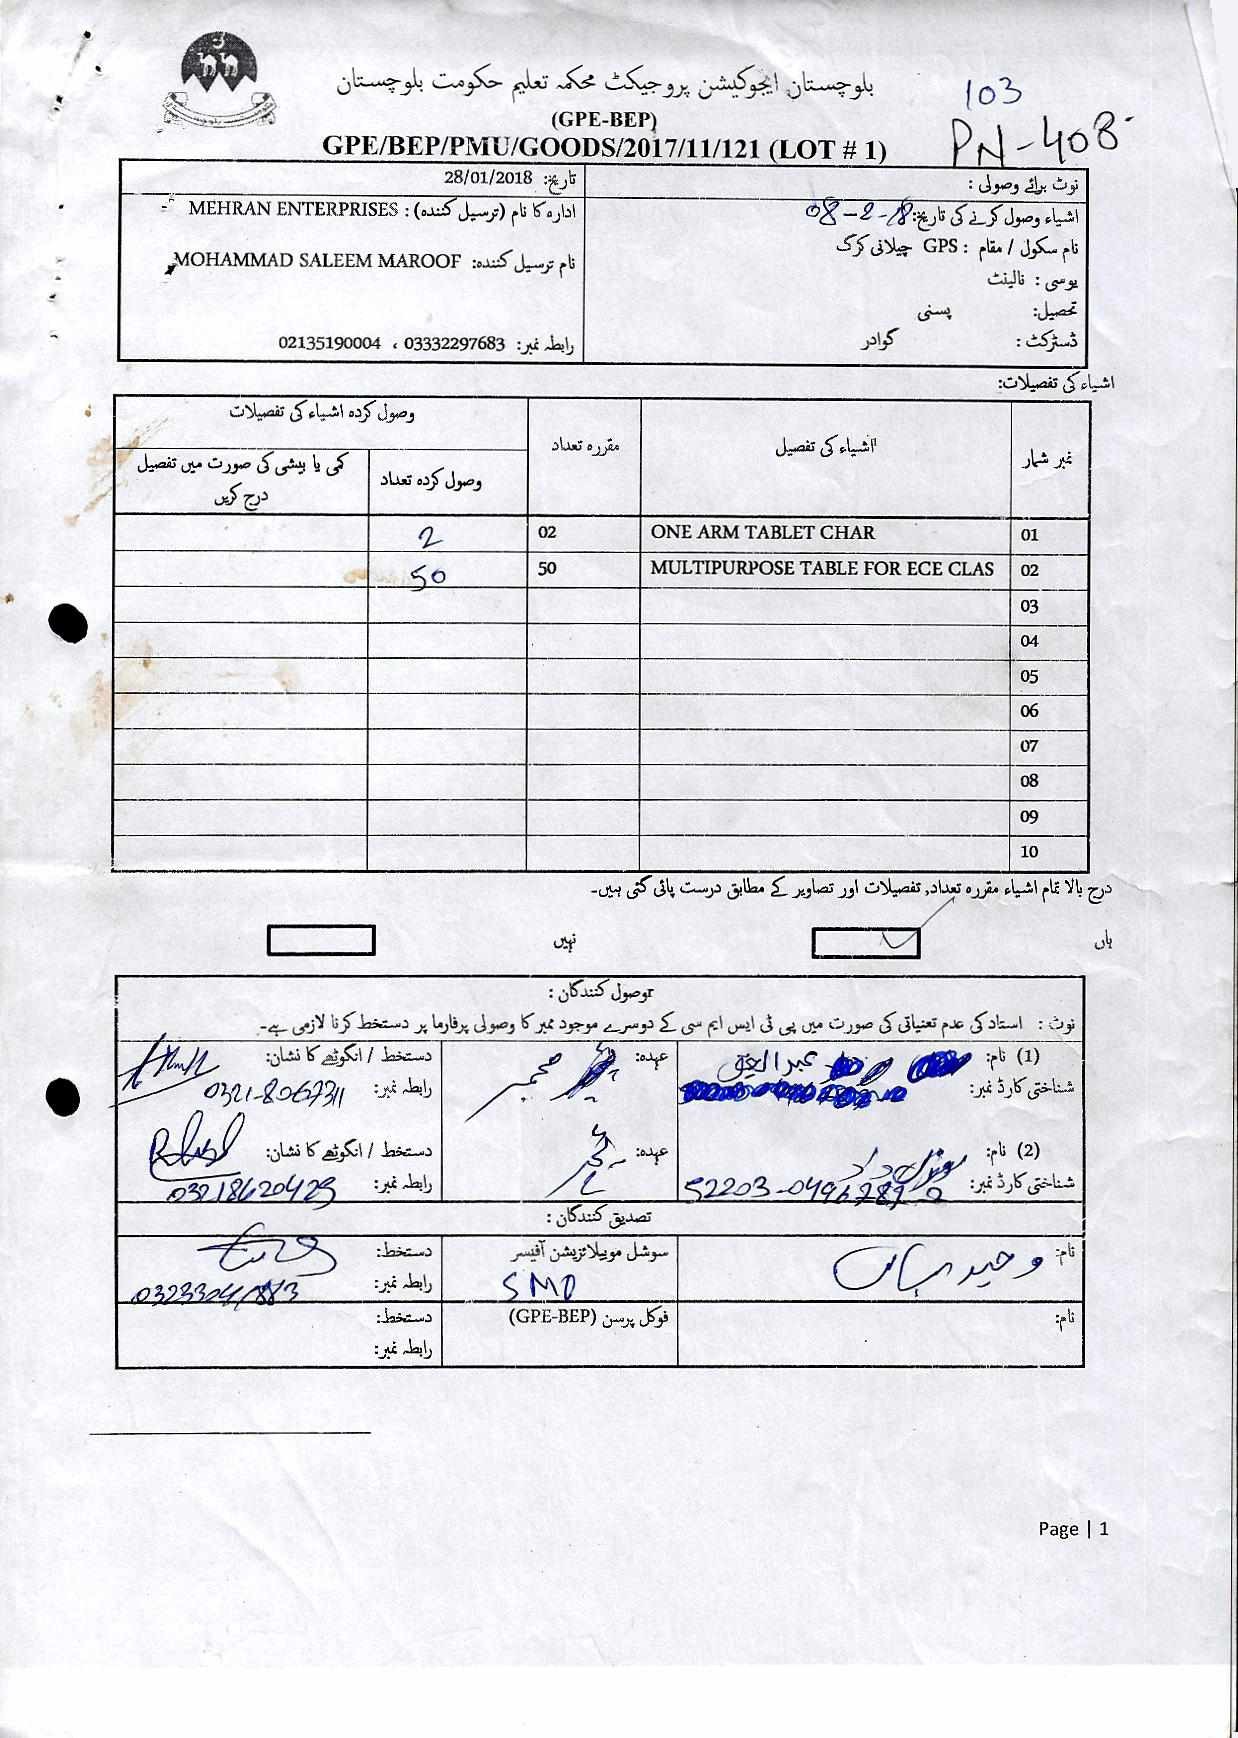 بلوچستان ایجوکیشن پروجیکٹ محکمہ تعلیم حکومت بلوچستان
103
(GPE-BEP)
PN-408
GPE/BEP/PMU/GOODS/2017/11/121 (LOT # 1)
نوٹ برائے وصولی :
تاریخ: 28/01/2018
اشیاء وصول کرنے کی تاریخ: 08-2-18
ادارہ کا نام (ترسیل کنندہ) : MEHRAN ENTERPRISES
نام سکول / مقام : GPS جیلانی کرگ
نام ترسیل کنندہ: MOHAMMAD SALEEM MAROOF
یوسی : نالینٹ
تحصیل: پسنی
ڈسٹرکٹ : گوادر
رابطہ نمبر: 03332297683 ، 02135190004
اشیاء کی تفصیلات:
نمبر شمار اشیاء کی تفصیل مقررہ تعداد وصول کردہ اشیاء کی تفصیلات
وصول کردہ تعداد کمی یا بیشی کی صورت میں تفصیل درج کریں
01 ONE ARM TABLET CHAR 02 2
02 MULTIPURPOSE TABLE FOR ECE CLAS 50 50
03
04
05
06
07
08
09
10
درج بالا تمام اشیاء مقررہ تعداد, تفصیلات اور تصاویر کے مطابق درست پائی گئی ہیں۔
ہاں نہیں
وصول کنندگان :
نوٹ : استاد کی عدم تعنیاتی کی صورت میں پی ٹی ایس ایم سی کے دوسرے موجود ممبر کا وصولی پرفارما پر دستخط کرنا لازمی ہے۔
(1) نام: عہدہ: دستخط / انگوٹھے کا نشان:
شناختی کارڈ نمبر: رابطہ نمبر: 0321-8067311
(2) نام: عہدہ: ٹیچر دستخط / انگوٹھے کا نشان:
شناختی کارڈ نمبر: رابطہ نمبر: 03218620429
تصدیق کنندگان :
نام: سوشل موبیلائزیشن آفیسر دستخط:
SMO رابطہ نمبر:
نام: فوکل پرسن (GPE-BEP) دستخط:
رابطہ نمبر:
Page | 1